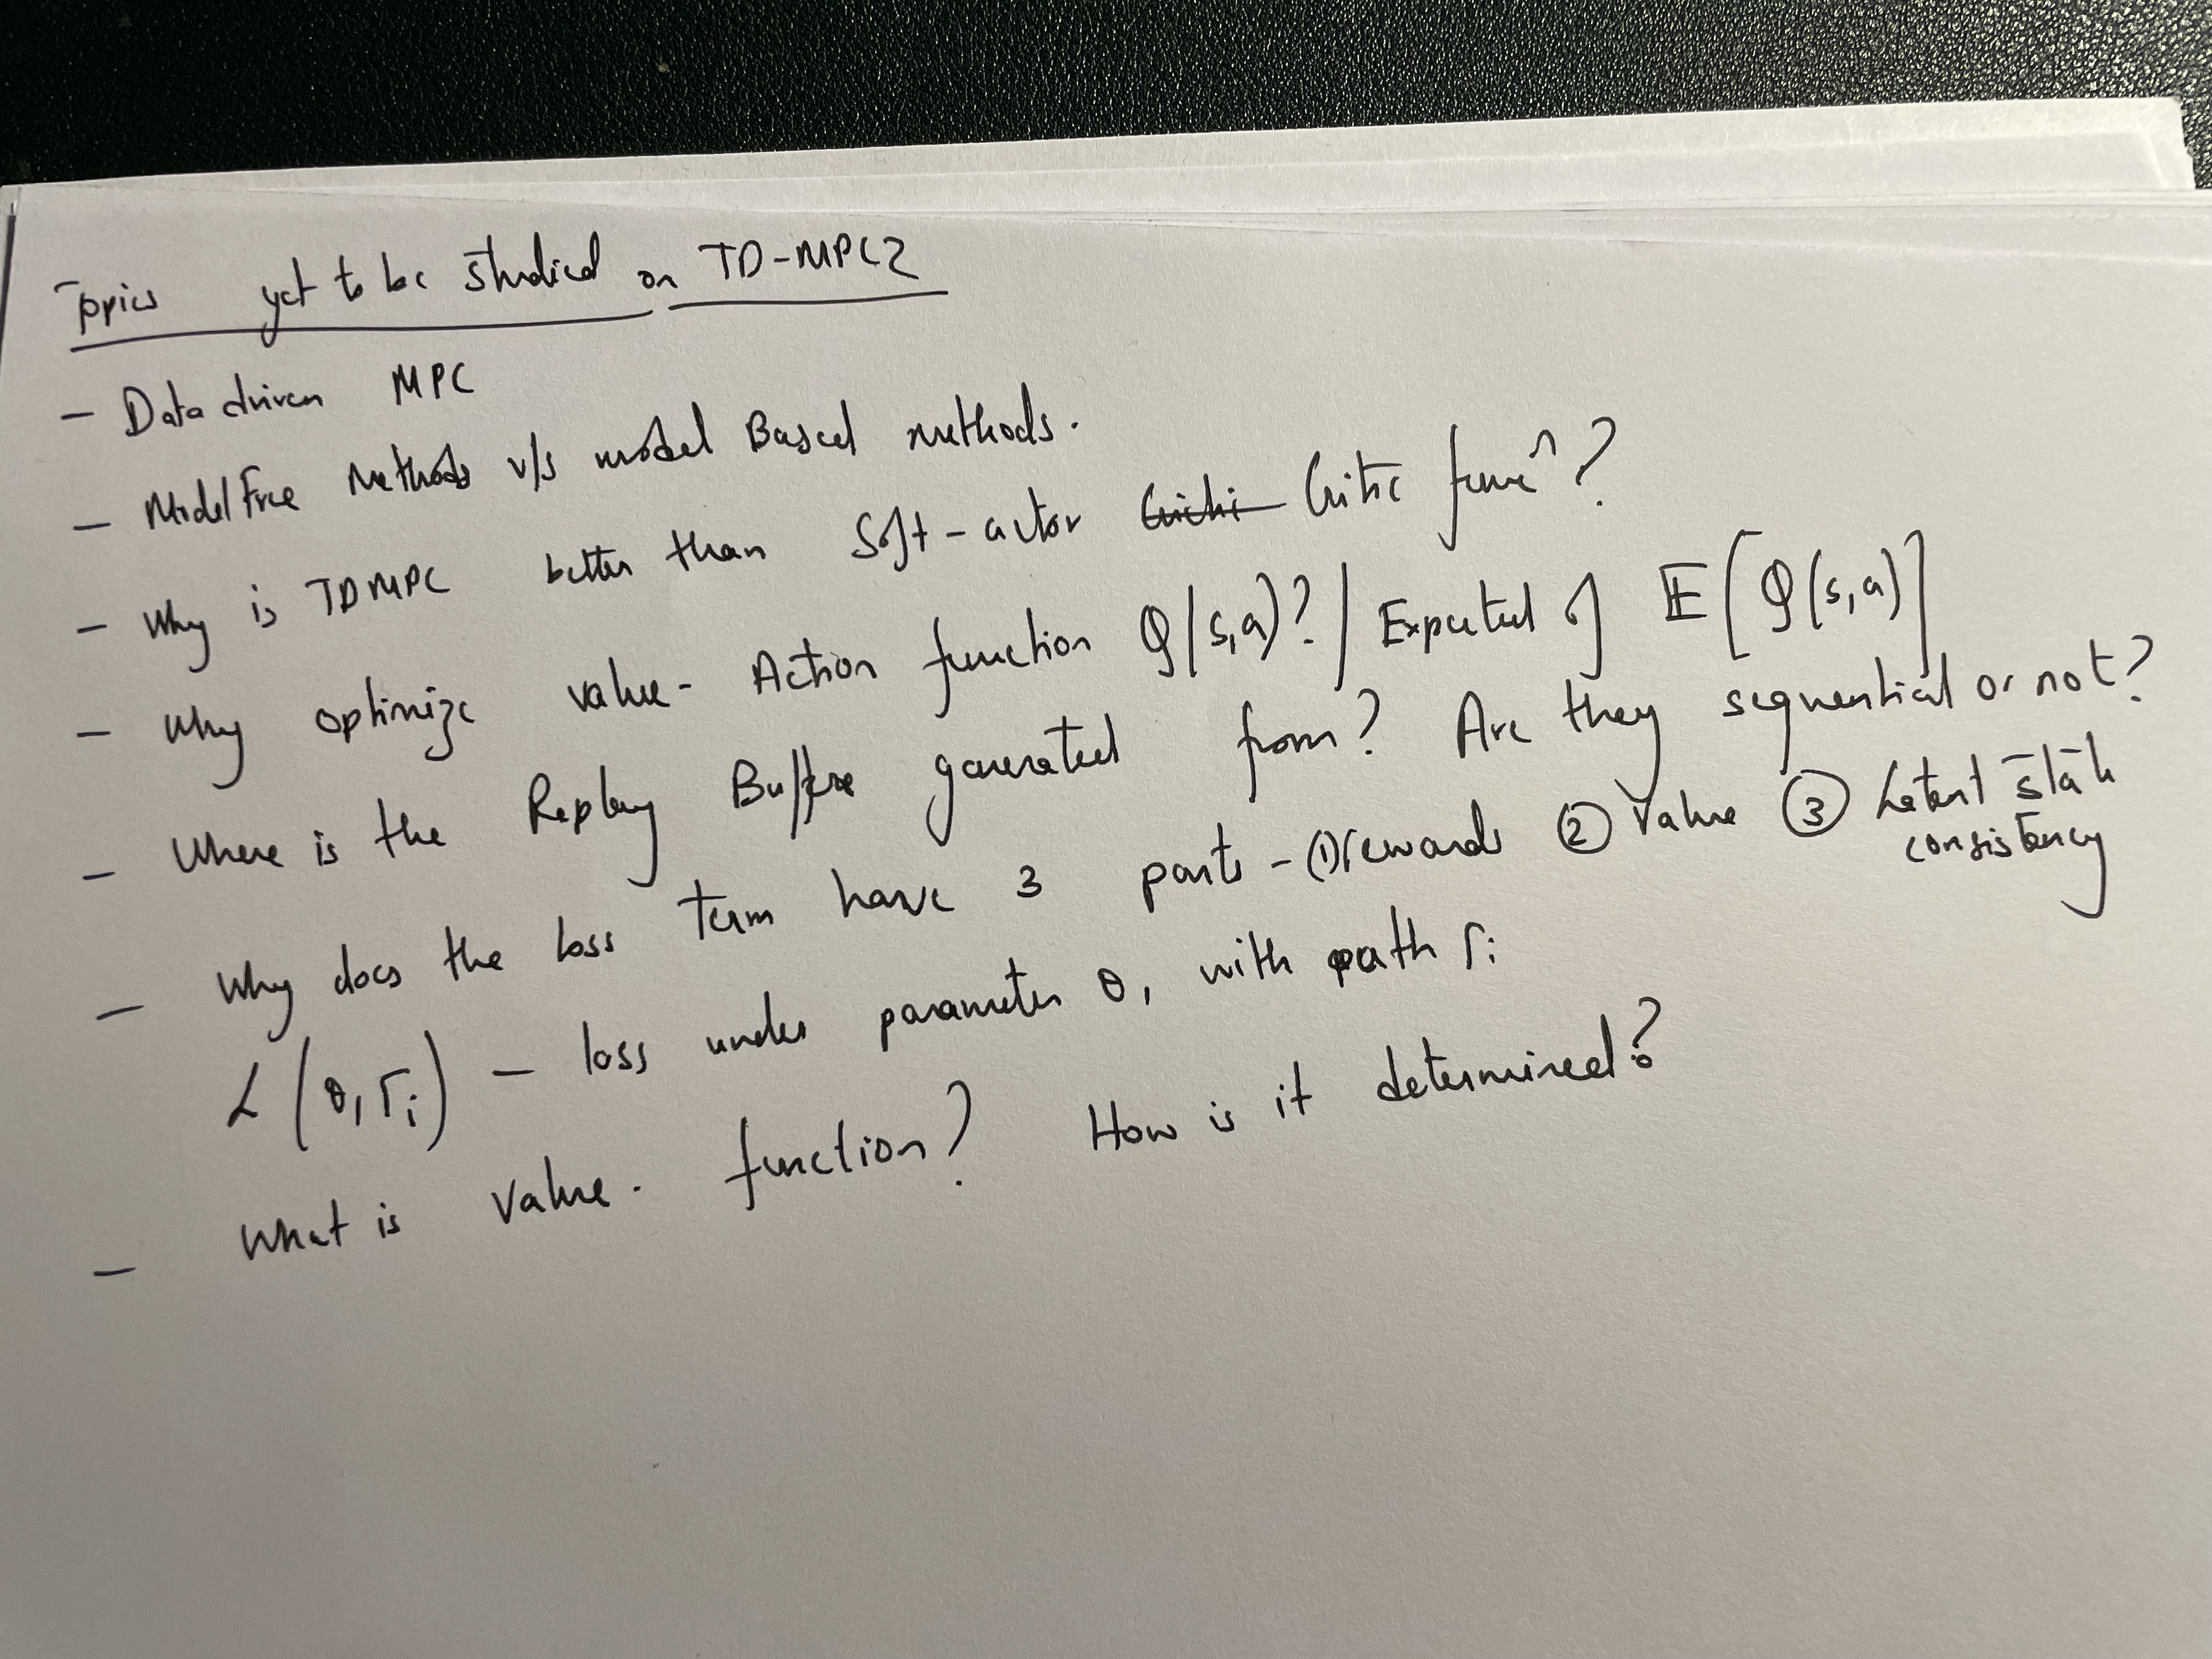 Topics yet to be studied on TD-MPC2
- Data driven MPC
- Model Free Methods v/s model Based methods.
- Why is TDMPC better than Soft-actor Critic func^n?
- Why optimize value-Action function Q(s,a)? / Expected E[Q(s,a)]
- Where is the Replay Buffer generated from? Are they sequential or not?
- Why does the loss term have 3 parts - (1) rewards (2) Value (3) Latent state consistency
L(θ, Γi) - loss under parameter θ, with path Γi
- What is value function? How is it determined?